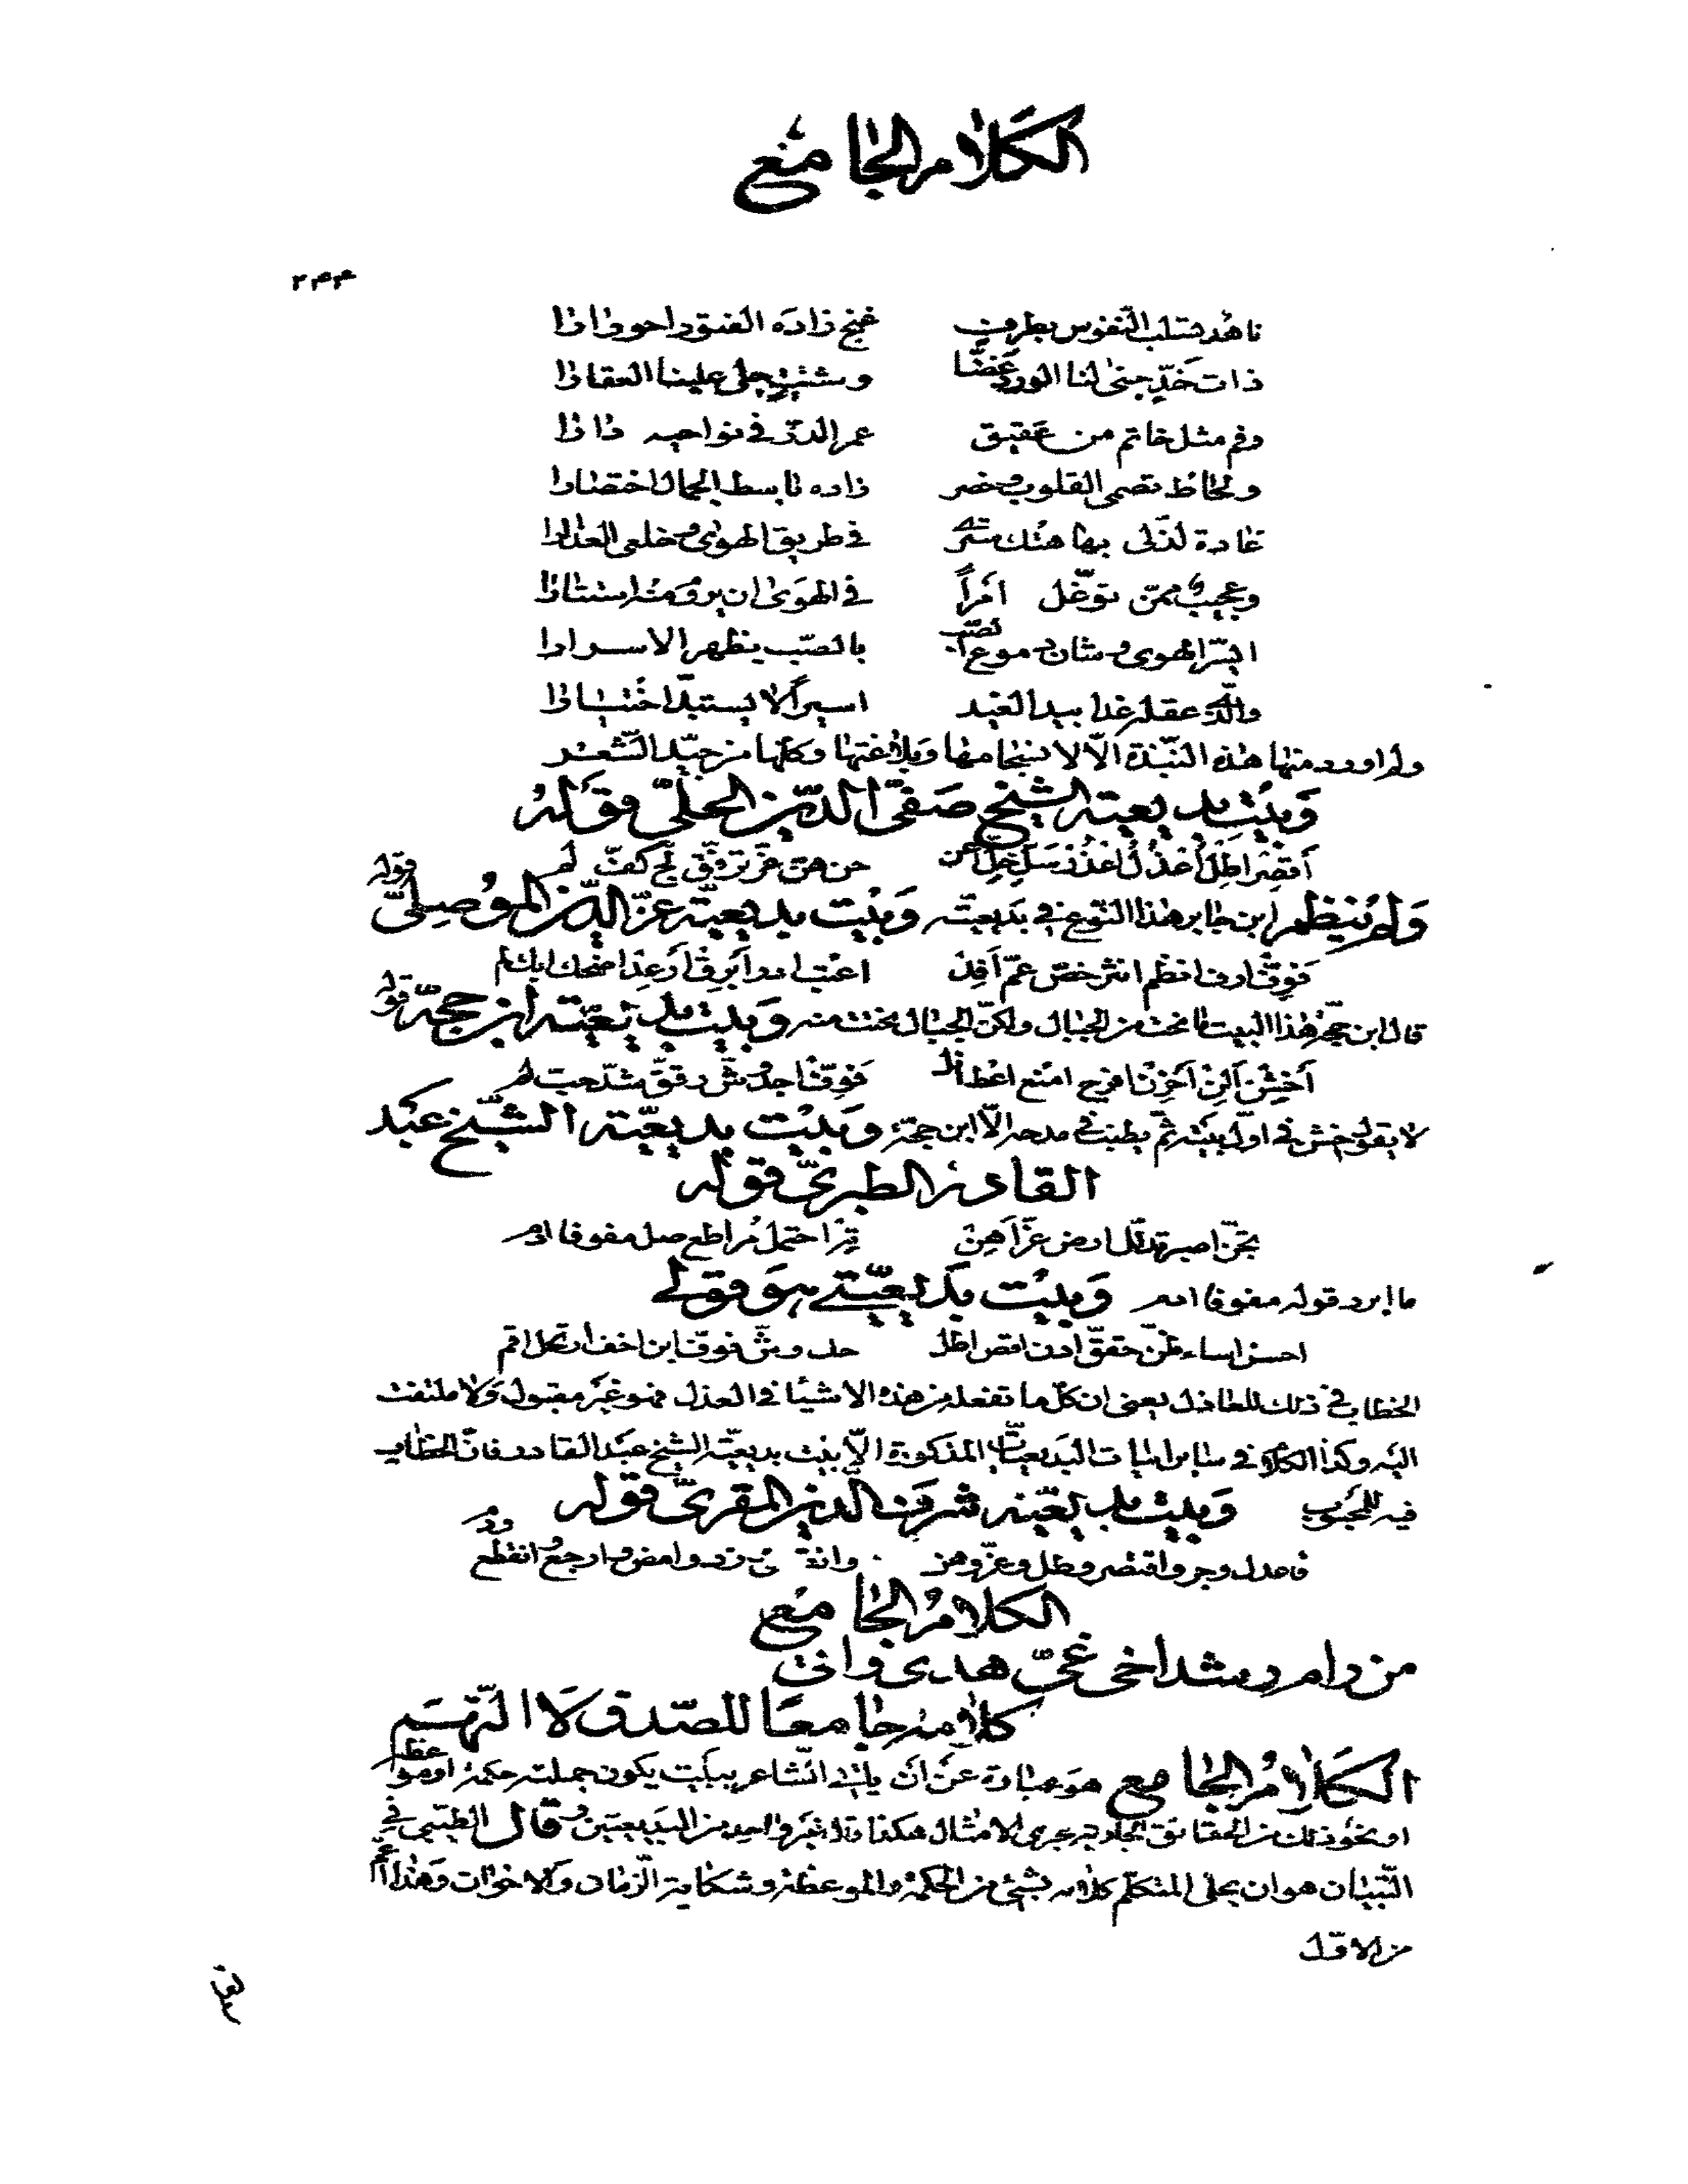 الكلام الجامع
٢٣٣
ناهد تسلب النفوس بطرف غنج زاده الفتور احورارا
ذات خدّ جنى لنا الورد غضّا وشتيت جلى علينا العقارا
وفم مثل خاتم من عقيق عمر الدرّ في نواحيه دارا
ولحاظ تصمى القلوب وخصر زاده باسط الجمال اختصارا
غادة لذّلى بها هتك ستري في طريق الهوى وخلعي العذارا
وعجيب ممّن توغّل امراً في الهوى ان يروم منه استتارا
ايسرّ الهوى وشان دموع الصّب بالصّب يظهر الاسرارا
والّذي عقله غدا بيد الغيد اسيراً لا يستبدّ اختيارا
ولم اورد منها هذه النّبذة الّا لانسجامها وبلاغتها وكلّها من جيّد الشّعر
وبيت بديعيته الشيخ صفيّ الدّين الحلّيّ قوله
اقصر اطل اعذل اعذر سلّ خلّ اعن خن هن عزّ ترفّق لجّ كفّ لم
ولم ينظم ابن جابر هذا النّوع في بديعيّته وبيت بديعيّة عزّ الدّين الموصليّ قوله
فوّق ادن انظم انثر خصّ عمّ افد اعتب ادر ابرق ارعد اضحك ابك لم
قال ابن حجّة هذا البيت ما نحت من الجبال ولكنّ الجبال نحتت منه وبيت بديعيّته ابن حجّة قوله
اخشن الن احزن افرح امنع اعط انل فوّف اجد وشّ رقّق شدّ حبّ لم
لا يقول خشن في اوّل بيته ثمّ يطنب في مدحه الّا ابن حجّة وبيت بديعيّته الشّيخ عبد
القادر الطبريّ قوله
تجنّ اصبر تدلّل ارض عزّ اهن ته احتمل مر اطع صل مفوفا ادم
ما ابرد قوله مفوفا ادم وبيت بديعيّتي هو قولي
احسن اساء ظنّ حقّق ادن اقص اطل حك وشّ فوّف ابن اخف ارتحل اقم
الخطاب في ذلك للعاذل يعني ان كلّ ما تفعله من هذه الاشيآ في العذل فهو غير مقبول ولا ملتفت
اليه وكذا الكلام في ساير ابيات البديعيّات المذكورة الّا بيت بديعيّة الشيخ عبد القادر فانّ الخطاب
فيه للمحبوب وبيت بديعيّته شرف الدّين المقريّ قوله
فاعدل وجر واقتصر وطل وعزّ وهن وامض وارجع وانقطع ودم
الكلام الجامع
من رام رشد اخي غيّ هدى واتى
كلامه جامعا للصّدق لا التّهم
الكلام الجامع هو عبارة عن ان ياتي الشّاعر ببيت يكون جملته حكمة او موعظة
او نحو ذلك من الحقائق الجارية مجرى الامثال هكذا قال غير واحد من البديعيّين وقال الطيّبي في
التّبيان هو ان يحلى المتكلّم كلامه بشيء من الحكمة والموعظة وشكاية الزّمان والاخوان وهذا اعمّ
من الاوّل